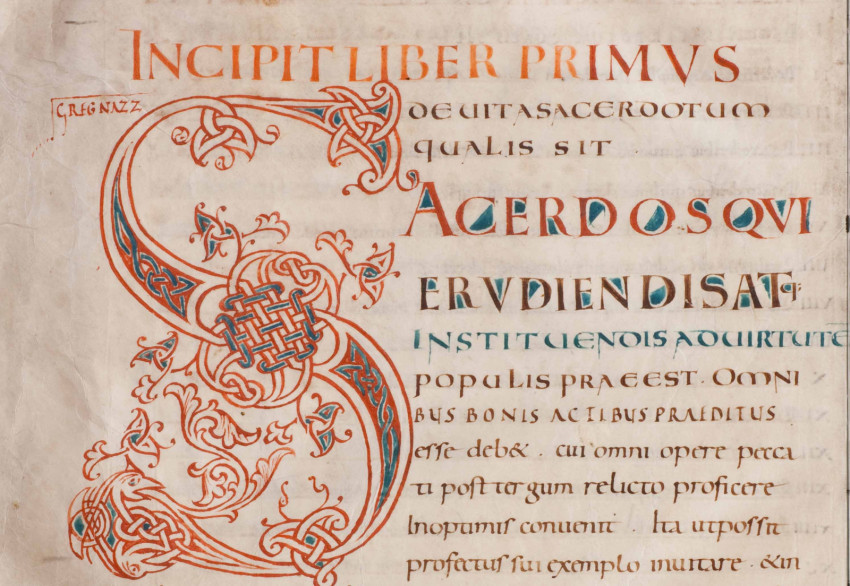 INCIPIT LIBER PRIMVS
GREG NAZZ
DE UITA SACERDOTUM
QUALIS SIT
SACERDOS QVI
ERVDIENDIS AT
INSTITUENDIS AD UIRTUTĒ
POPULIS PRAEEST. OMNI
BUS BONIS ACTIBUS PRAEDITUS.
esse deb&. cui omni opere pecca
ti post tergum relicto proficere
In optimis conuenit. Ita ut possit
profectus sui exemplo inuitare. &in